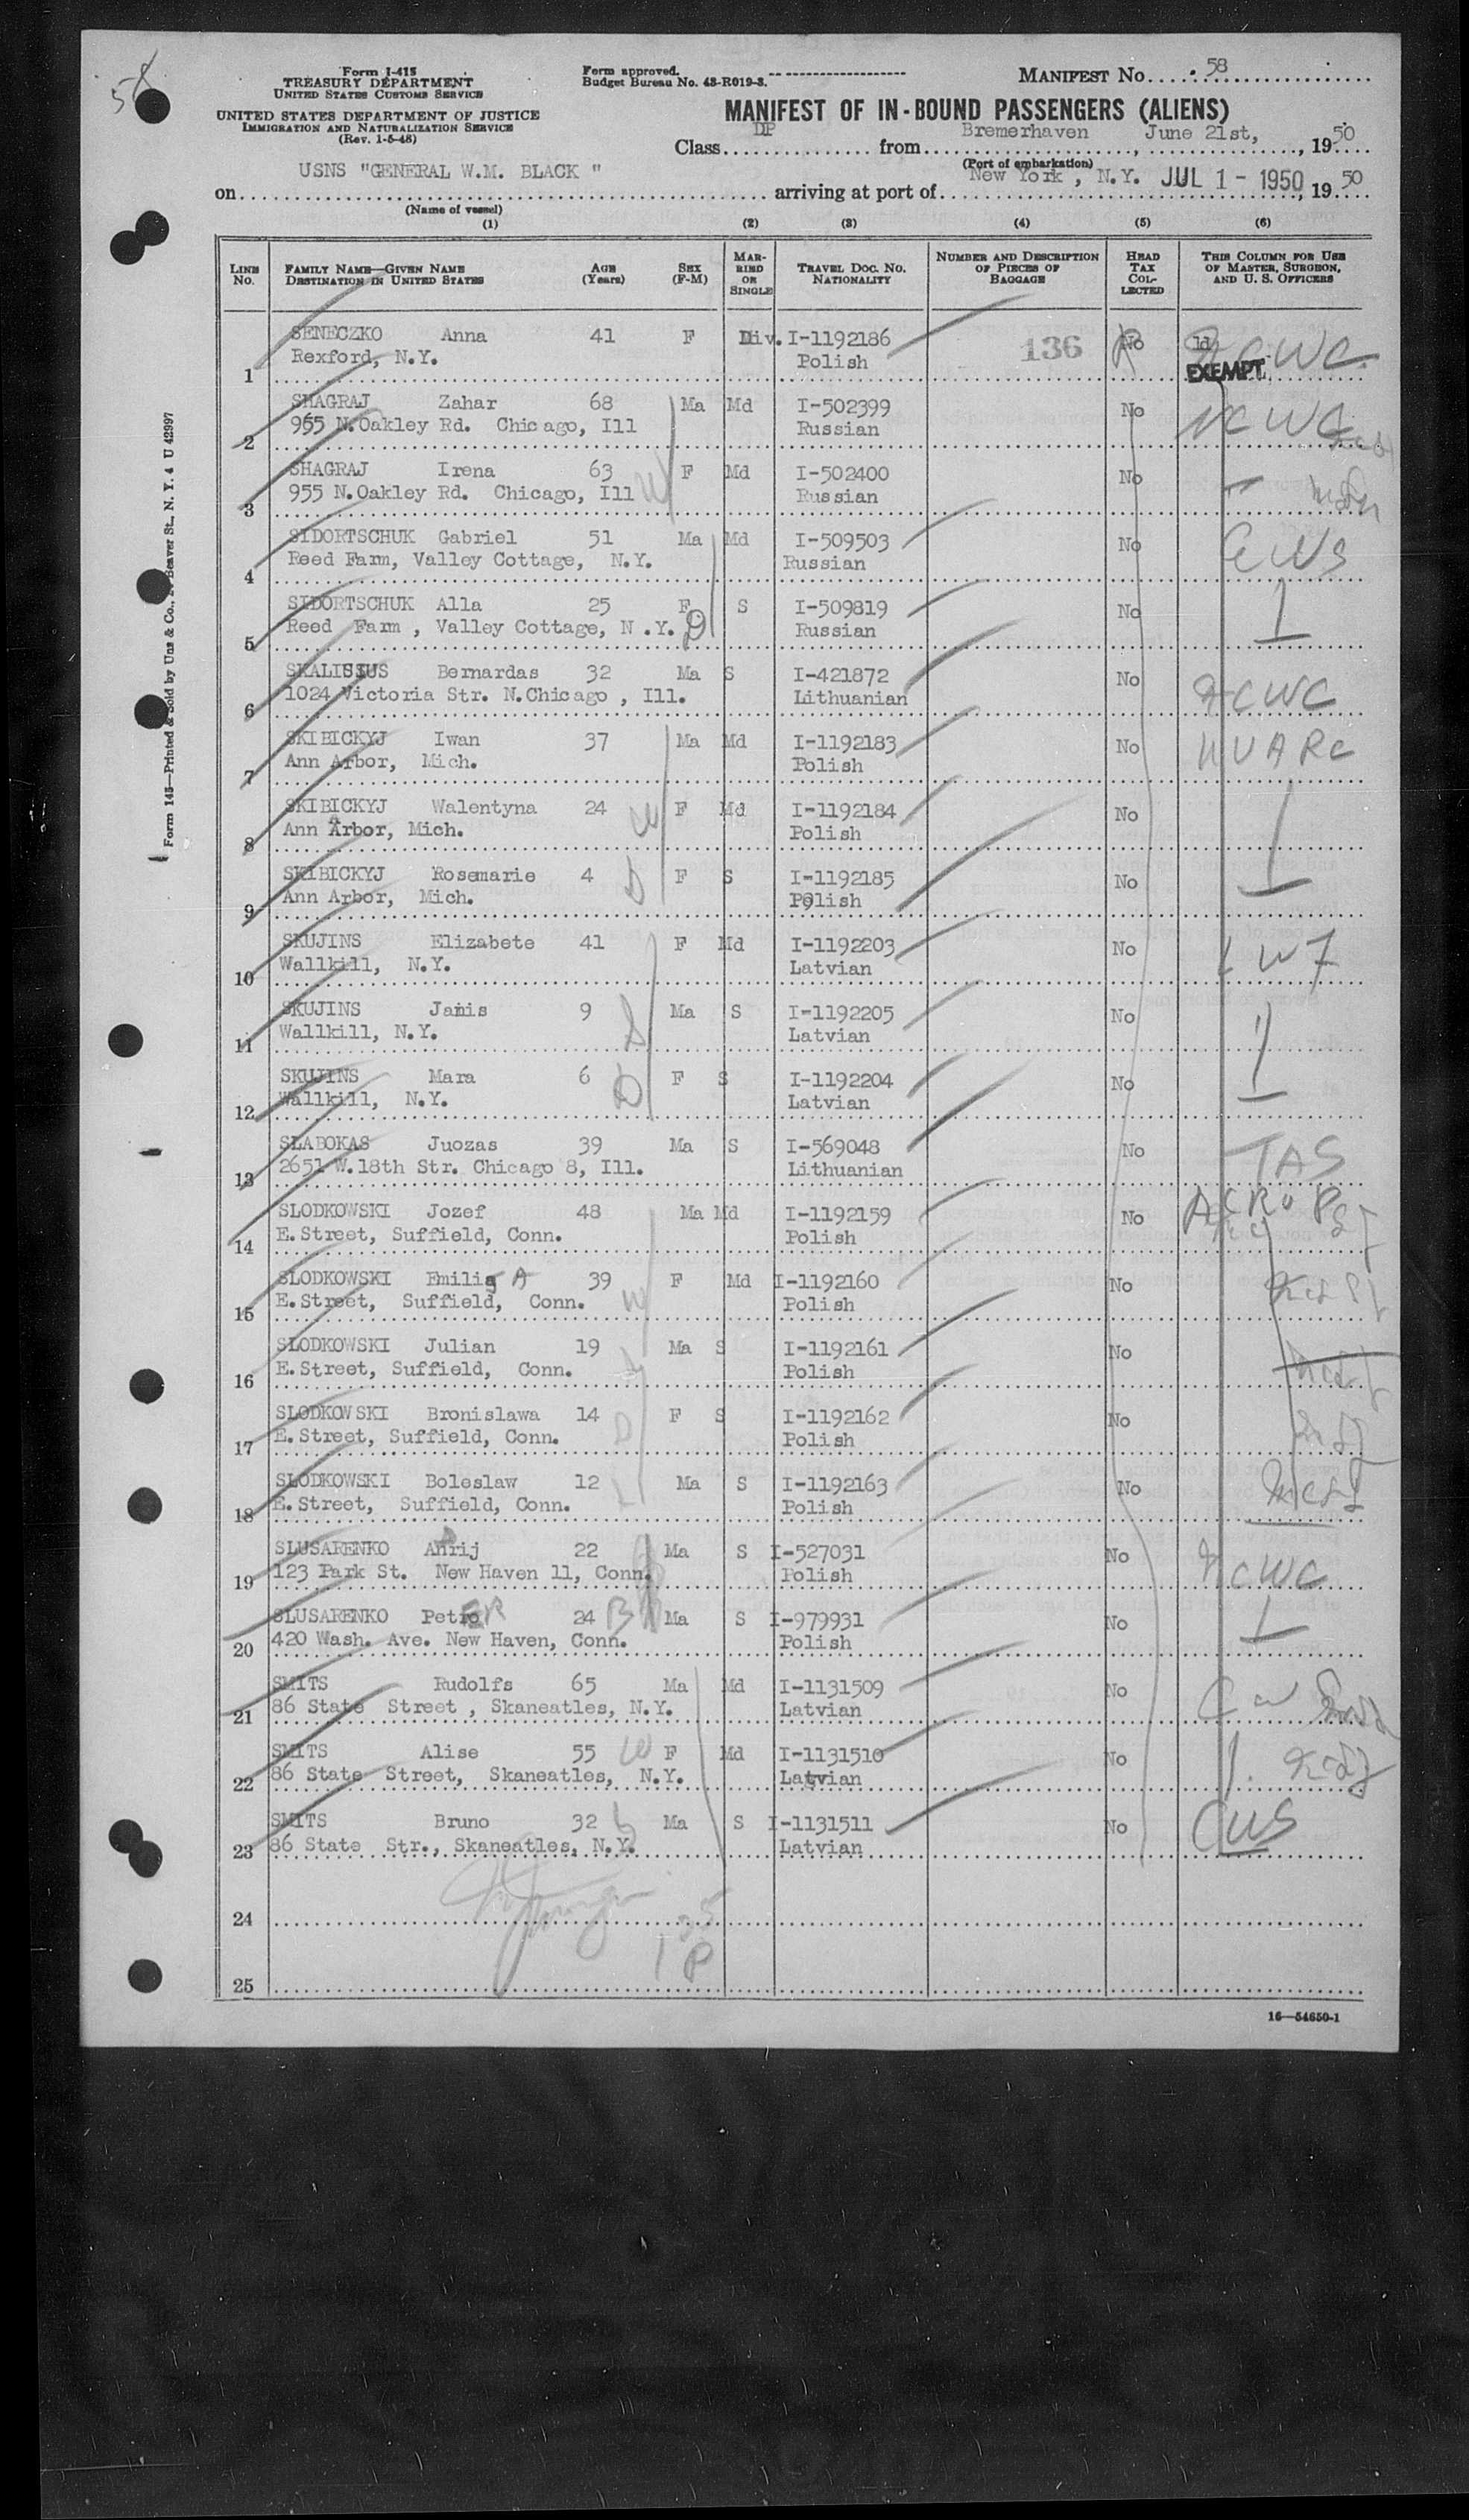 58
Form I-415
TREASURY DEPARTMENT
UNITED STATES CUSTOMS SERVICE
UNITED STATES DEPARTMENT OF JUSTICE
IMMIGRATION AND NATURALIZATION SERVICE
(Rev. 1-5-48)
Form approved.
Budget Bureau No. 43-R019-3.
MANIFEST No. 58
MANIFEST OF IN-BOUND PASSENGERS (ALIENS)
Class DP from Bremerhaven, June 21st, 1950
(Port of embarkation)
on USNS "GENERAL W.M. BLACK " arriving at port of New York, N.Y. JUL 1 - 1950, 1950
(Name of vessel)
(1) (2) (3) (4) (5) (6)
LINE No. FAMILY NAME—GIVEN NAME DESTINATION IN UNITED STATES AGE (Years) SEX (F-M) MARRIED OR SINGLE TRAVEL DOC. NO. NATIONALITY NUMBER AND DESCRIPTION OF PIECES OF BAGGAGE HEAD TAX COLLECTED THIS COLUMN FOR USE OF MASTER, SURGEON, AND U. S. OFFICERS
SENECZKO Anna 41 F Div. I-1192186 136 No ld NCWC
1 Rexford, N.Y. Polish EXEMPT
SHAGRAJ Zahar 68 Ma Md I-502399 No NCWC
2 955 N.Oakley Rd. Chicago, Ill Russian
SHAGRAJ Irena 63 F Md I-502400 No
3 955 N.Oakley Rd. Chicago, Ill W Russian
SIDORTSCHUK Gabriel 51 Ma Md I-509503 No CWS
4 Reed Farm, Valley Cottage, N.Y. Russian
SIDORTSCHUK Alla 25 F S I-509819 No
5 Reed Farm , Valley Cottage, N .Y. D Russian
SKALISIUS Bernardas 32 Ma S I-421872 No
6 1024 Victoria Str. N.Chicago , Ill. Lithuanian NCWC
SKIBICKYJ Iwan 37 Ma Md I-1192183 No WUARC
7 Ann Arbor, Mich. Polish
SKIBICKYJ Walentyna 24 W F Md I-1192184 No
8 Ann Arbor, Mich. Polish
SKIBICKYJ Rosemarie 4 D F S I-1192185 No
9 Ann Arbor, Mich. Polish
SKUJINS Elizabete 41 F Md I-1192203 No LWF
10 Wallkill, N.Y. Latvian
SKUJINS Janis 9 S Ma S I-1192205 No
11 Wallkill, N.Y. Latvian
SKUJINS Mara 6 D F S I-1192204 No
12 Wallkill, N.Y. Latvian
SLABOKAS Juozas 39 Ma S I-569048 No TAS
13 2651 W.18th Str. Chicago 8, Ill. Lithuanian
SLODKOWSKI Jozef 48 Ma Md I-1192159 No
14 E.Street, Suffield, Conn. Polish
SLODKOWSKI Emilia A 39 F Md I-1192160 No
15 E.Street, Suffield, Conn. W Polish
SLODKOWSKI Julian 19 Ma S I-1192161 No
16 E.Street, Suffield, Conn. Polish
SLODKOWSKI Bronislawa 14 F S I-1192162 No
17 E.Street, Suffield, Conn. D Polish
SLODKOWSKI Boleslaw 12 Ma S I-1192163 No
18 E.Street, Suffield, Conn. Polish
SLUSARENKO Anrij 22 Ma S I-527031 No NCWC
19 123 Park St. New Haven 11, Conn. Polish
SLUSARENKO Petro ER 24 BR Ma S I-979931 No
20 420 Wash. Ave. New Haven, Conn. Polish
SMITS Rudolfs 65 Ma Md I-1131509 No
21 86 State Street , Skaneatles, N.Y. Latvian
SMITS Alise 55 W F Md I-1131510 No
22 86 State Street, Skaneatles, N.Y. Latvian
SMITS Bruno 32 S Ma S I-1131511 No CWS
23 86 State Str., Skaneatles, N.Y. Latvian
24
25
16—54650-1